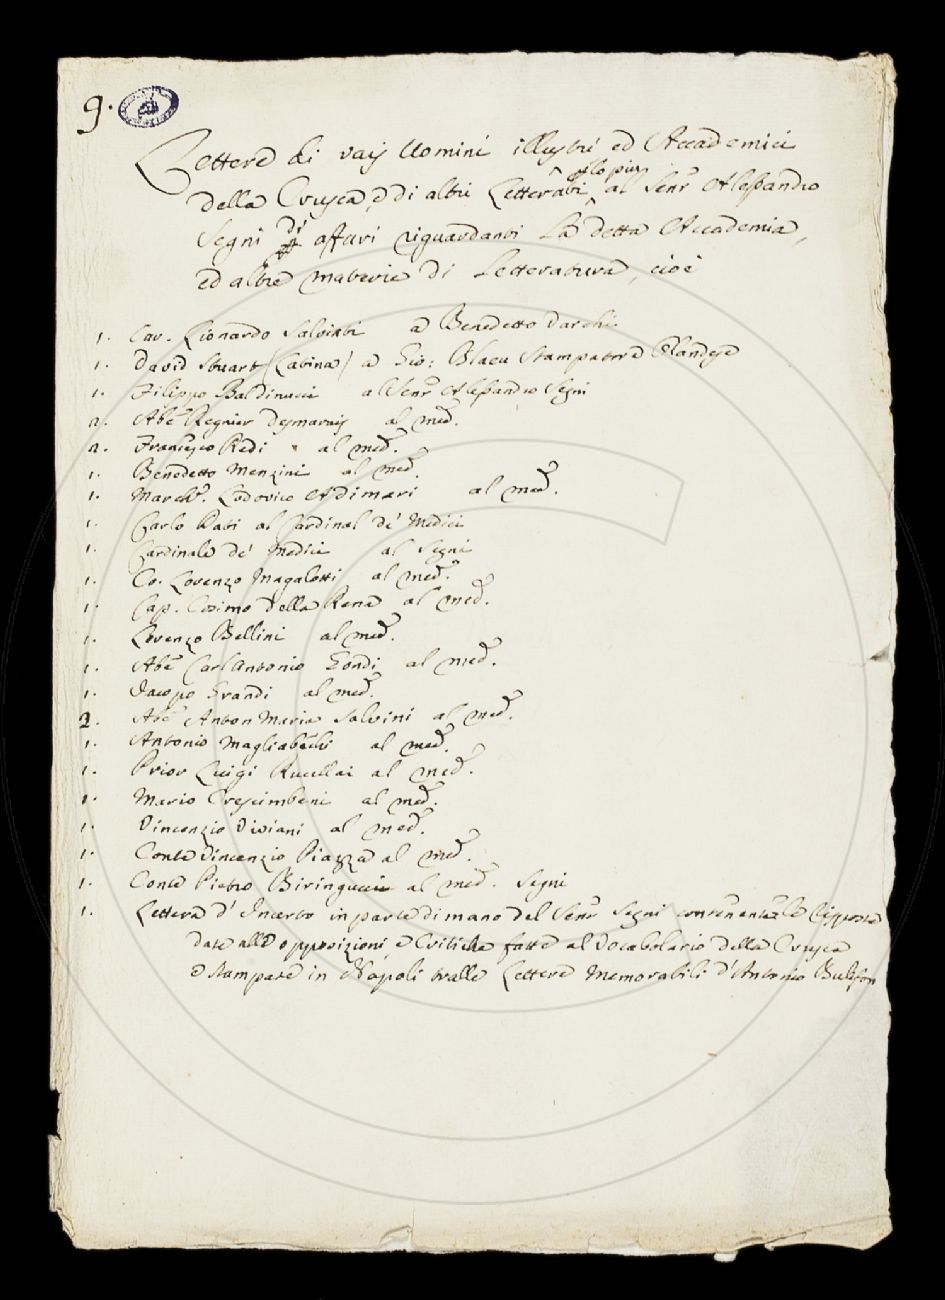 9.
Lettere di varij Uomini illustri ed Accademici
della Crusca, e di altri Letterati p lo più al Senr Alessandro
Segni di affari riguardanti la detta Accademia,
ed altre materie di Letteratura, cioè
1. Cav. Lionardo Salviati a Benedetto Varchi
1. David Stuart (Latina) a Gio: Blaeu Stampatore Olandese
1. Filippo Baldinucci al Senr Alessandro Segni
2. Abe Regnier Desmarais al med.
2. Francesco Redi al med.
1. Benedetto Menzini al med.
1. March. Lodovico Adimari al med.
1. Carlo Dati al Cardinal de' Medici
1. Cardinale de' Medici al Segni
1. Co. Lorenzo Magalotti al med.
1. Cap. Cosimo della Rena al med.
1. Lorenzo Bellini al med.
1. Abe Carl'Antonio Gondi al med.
1. Iacopo Grandi al med.
2. Abe Anton Maria Salvini al med.
1. Antonio Magliabechi al med.
1. Prior Luigi Rucellai al med.
1. Mario Crescimbeni al med.
1. Vincenzio Viviani al med.
1. Conte Vincenzio Piazza al med.
1. Conte Pietro Biringucci al med. Segni
1. Lettera d'Incerto in parte di mano del Senr Segni contenente le Risposte
date alle opposizioni e Critiche fatte al Vocabolario della Crusca
e stampate in Napoli tralle Lettere Memorabili d'Antonio Bulifon